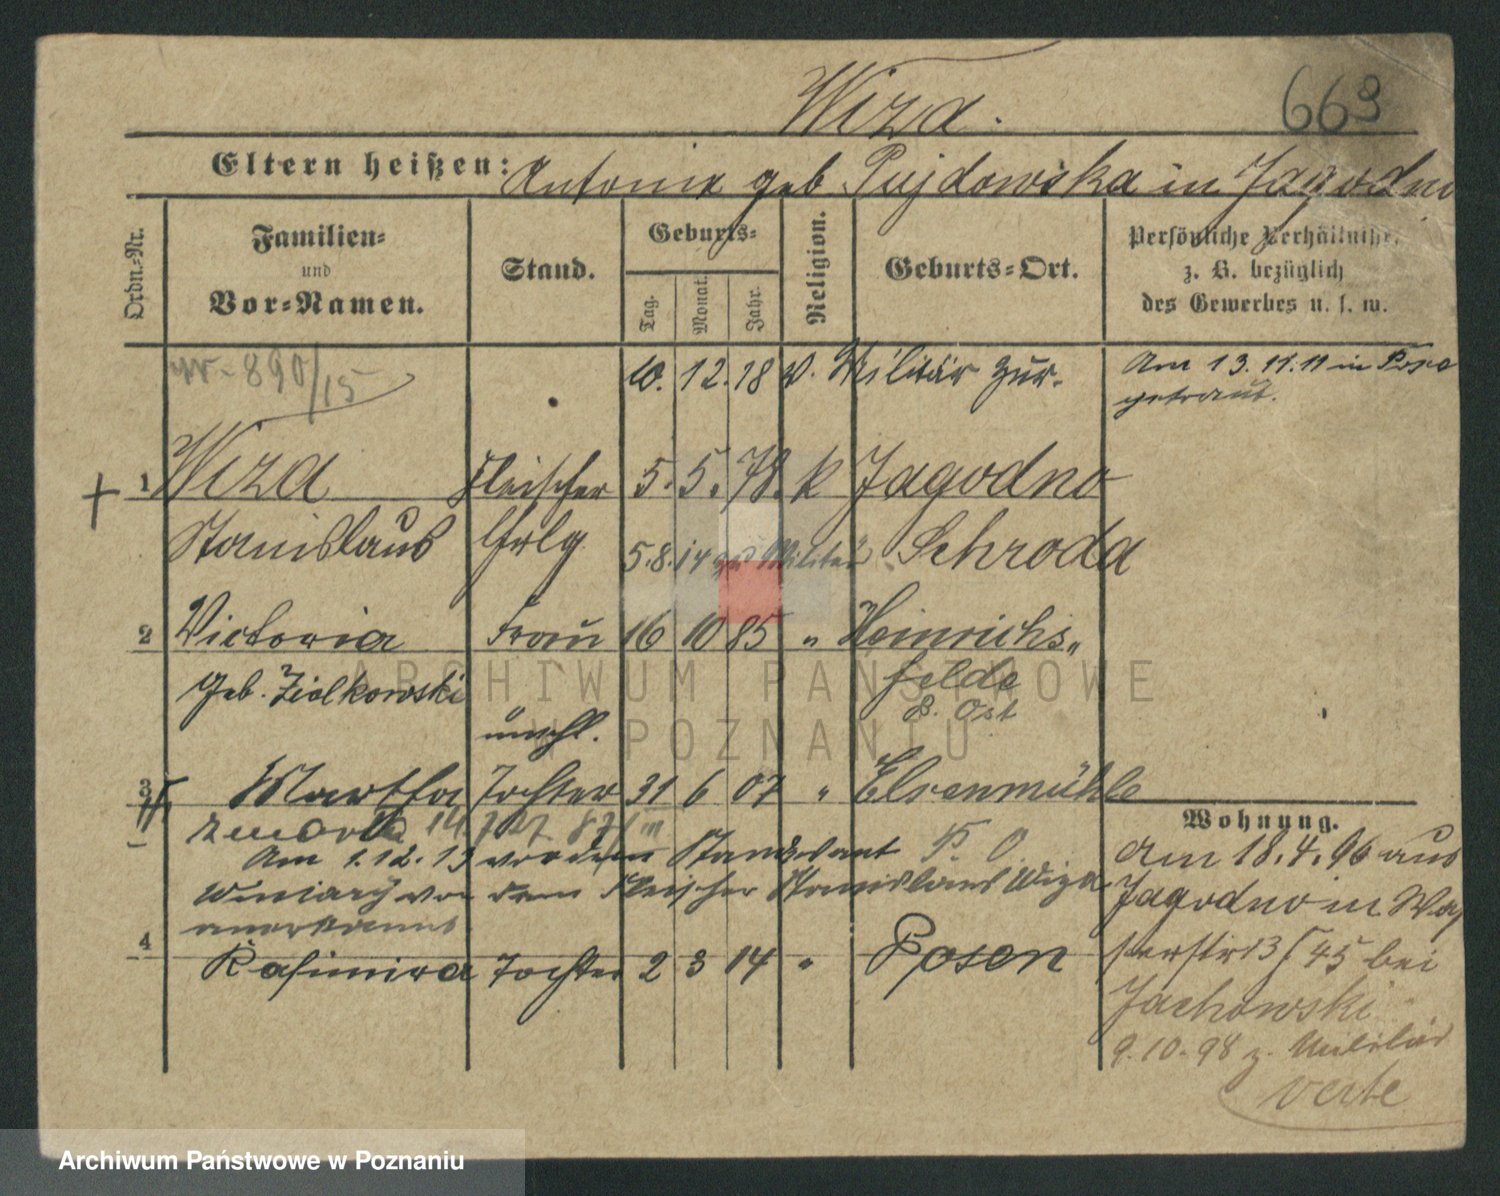 Wiza.
663
Eltern heißen: Antonie geb Pujdowska in Jagodno
Ordn.-Nr.
Familien-
und
Vor-Namen.
Stand.
Geburts-
Tag.
Monat.
Jahr.
Religion.
Geburts-Ort.
Persönliche Verhältnisse,
z. B. bezüglich
des Gewerbes u. s. w.
890/15
10. 12. 18 v. Militär zur.
Am 13. 11. 11 in Pose
getraut.
1 Wiza Fleischer 5. 5. 78. k Jagodno
Stanislaus Schroda
5. 8. 14 zu Militär
2 Victoria Frau 16 10 85 " Heinrichs-
geb. Ziolkowski felde
P. Ost
unehl.
3 Martha Tochter 31 6 07 " Elsenmühle
zmarła 14 7 27
Am 1. 12. 13 vor dem Standesamt P. O
Winiary von dem Fleischer Stanislaus Wiza
anerkannt.
4 Kasimira Tochter 2 3 14 " Posen
Wohnung.
Am 18. 4. 96 aus
Jagodno in
13/45 bei
Jachowski
9. 10. 98 z. Militär
verte
ARCHIWUM PAŃSTWOWE
W POZNANIU
Archiwum Państwowe w Poznaniu